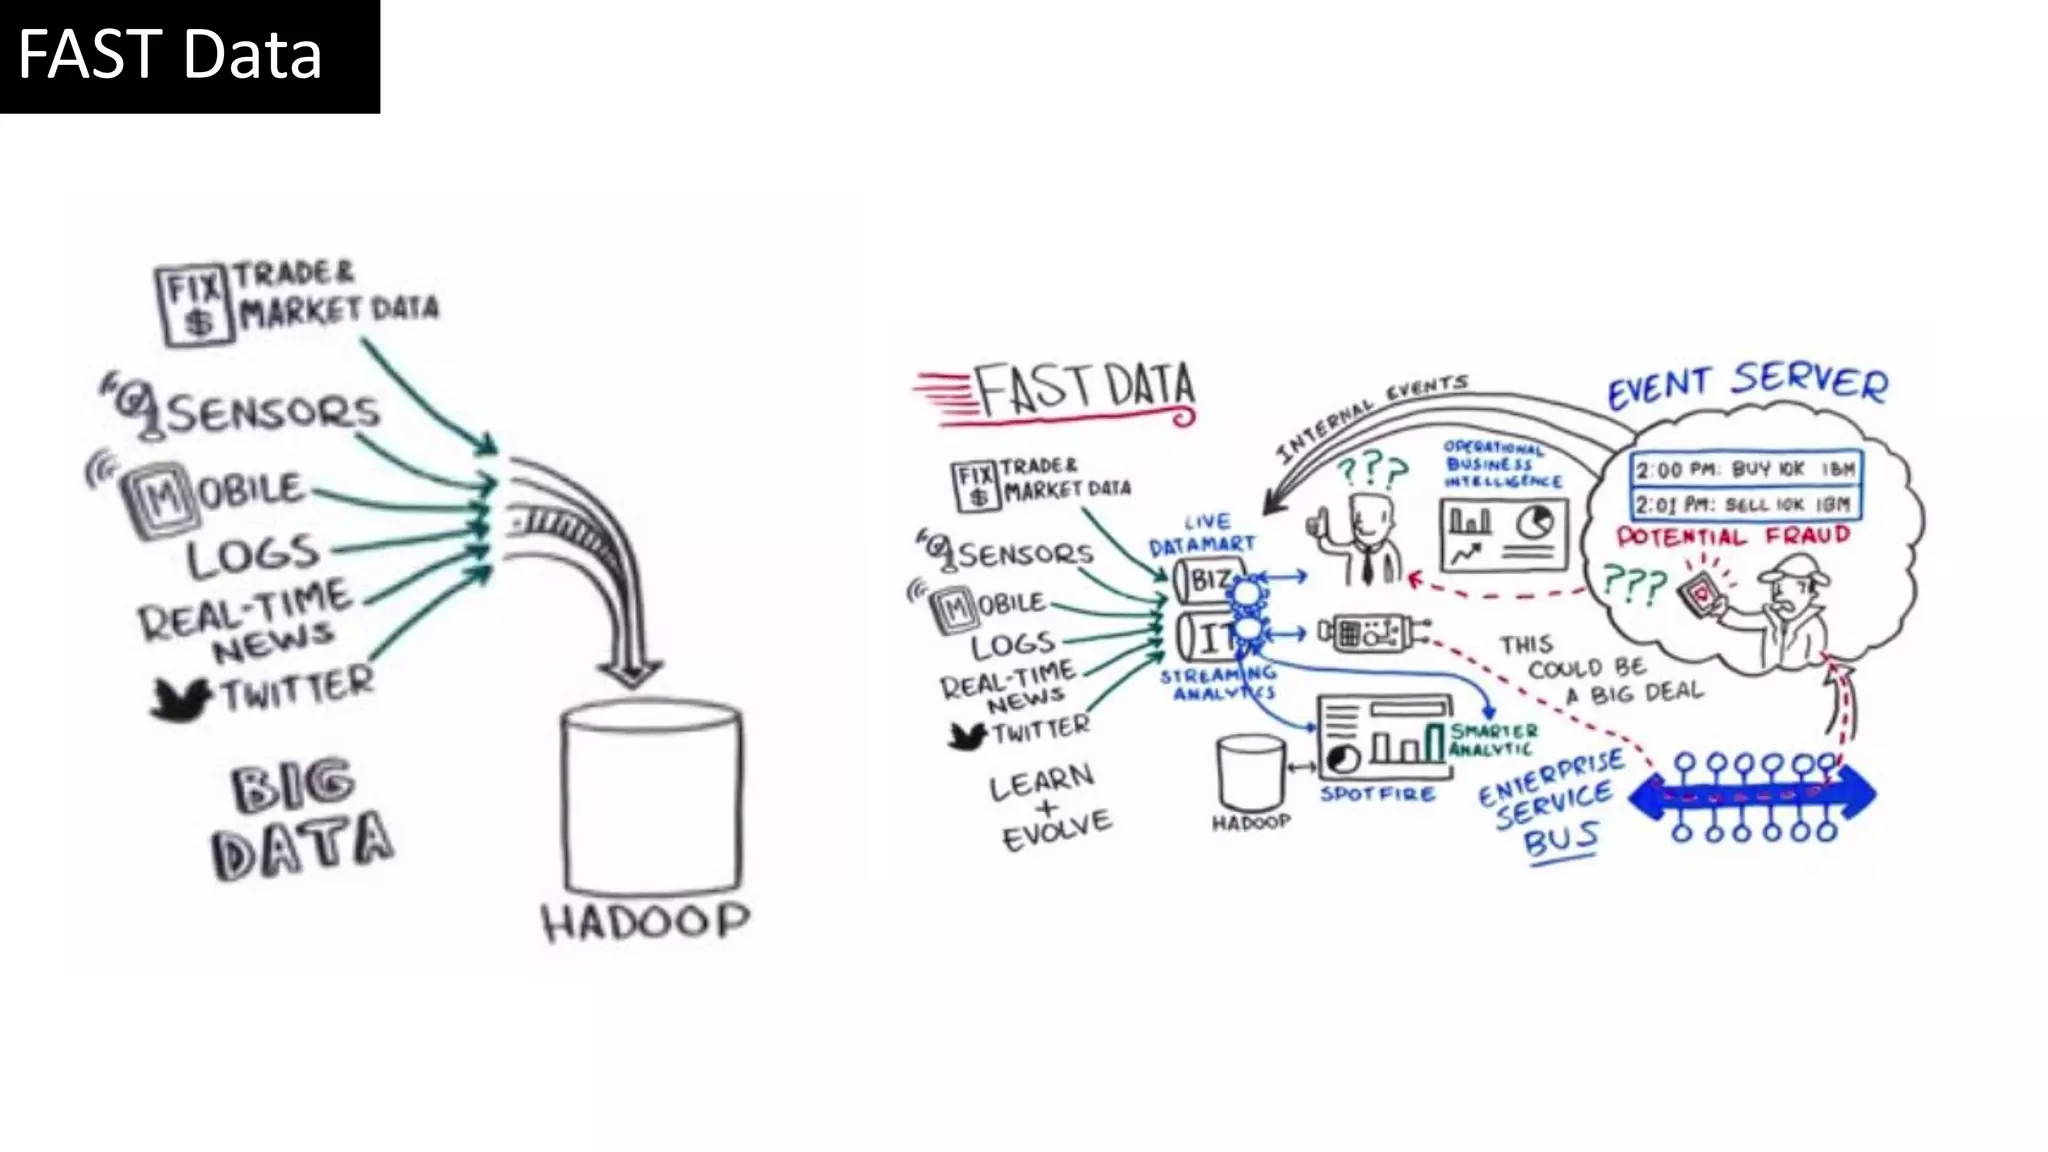 FAST Data
FIX
$
TRADE &
MARKET DATA
SENSORS
MOBILE
LOGS
REAL-TIME
NEWS
TWITTER
BIG
DATA
HADOOP
FAST DATA
FIX
$
TRADE &
MARKET DATA
SENSORS
MOBILE
LOGS
REAL-TIME
NEWS
TWITTER
LEARN
+
EVOLVE
LIVE
DATAMART
BIZ
IT
STREAMING
ANALYTICS
HADOOP
INTERNAL EVENTS
???
OPERATIONAL
BUSINESS
INTELLIGENCE
SMARTER
ANALYTIC
SPOTFIRE
EVENT SERVER
2:00 PM: BUY 10K IBM
2:01 PM: SELL 10K IBM
POTENTIAL FRAUD
???
THIS
COULD BE
A BIG DEAL
ENTERPRISE
SERVICE
BUS